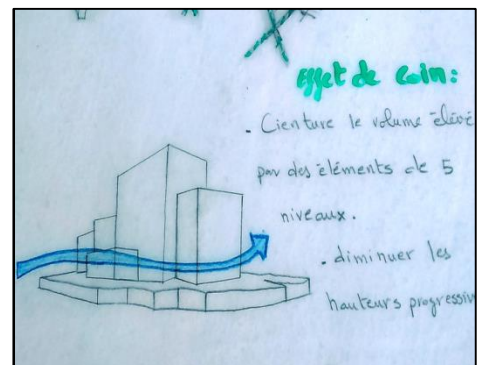 Effet de coin:
. Cienture le volume élevé
par des éléments de 5
niveaux.
. diminuer les
hauteurs progressiv